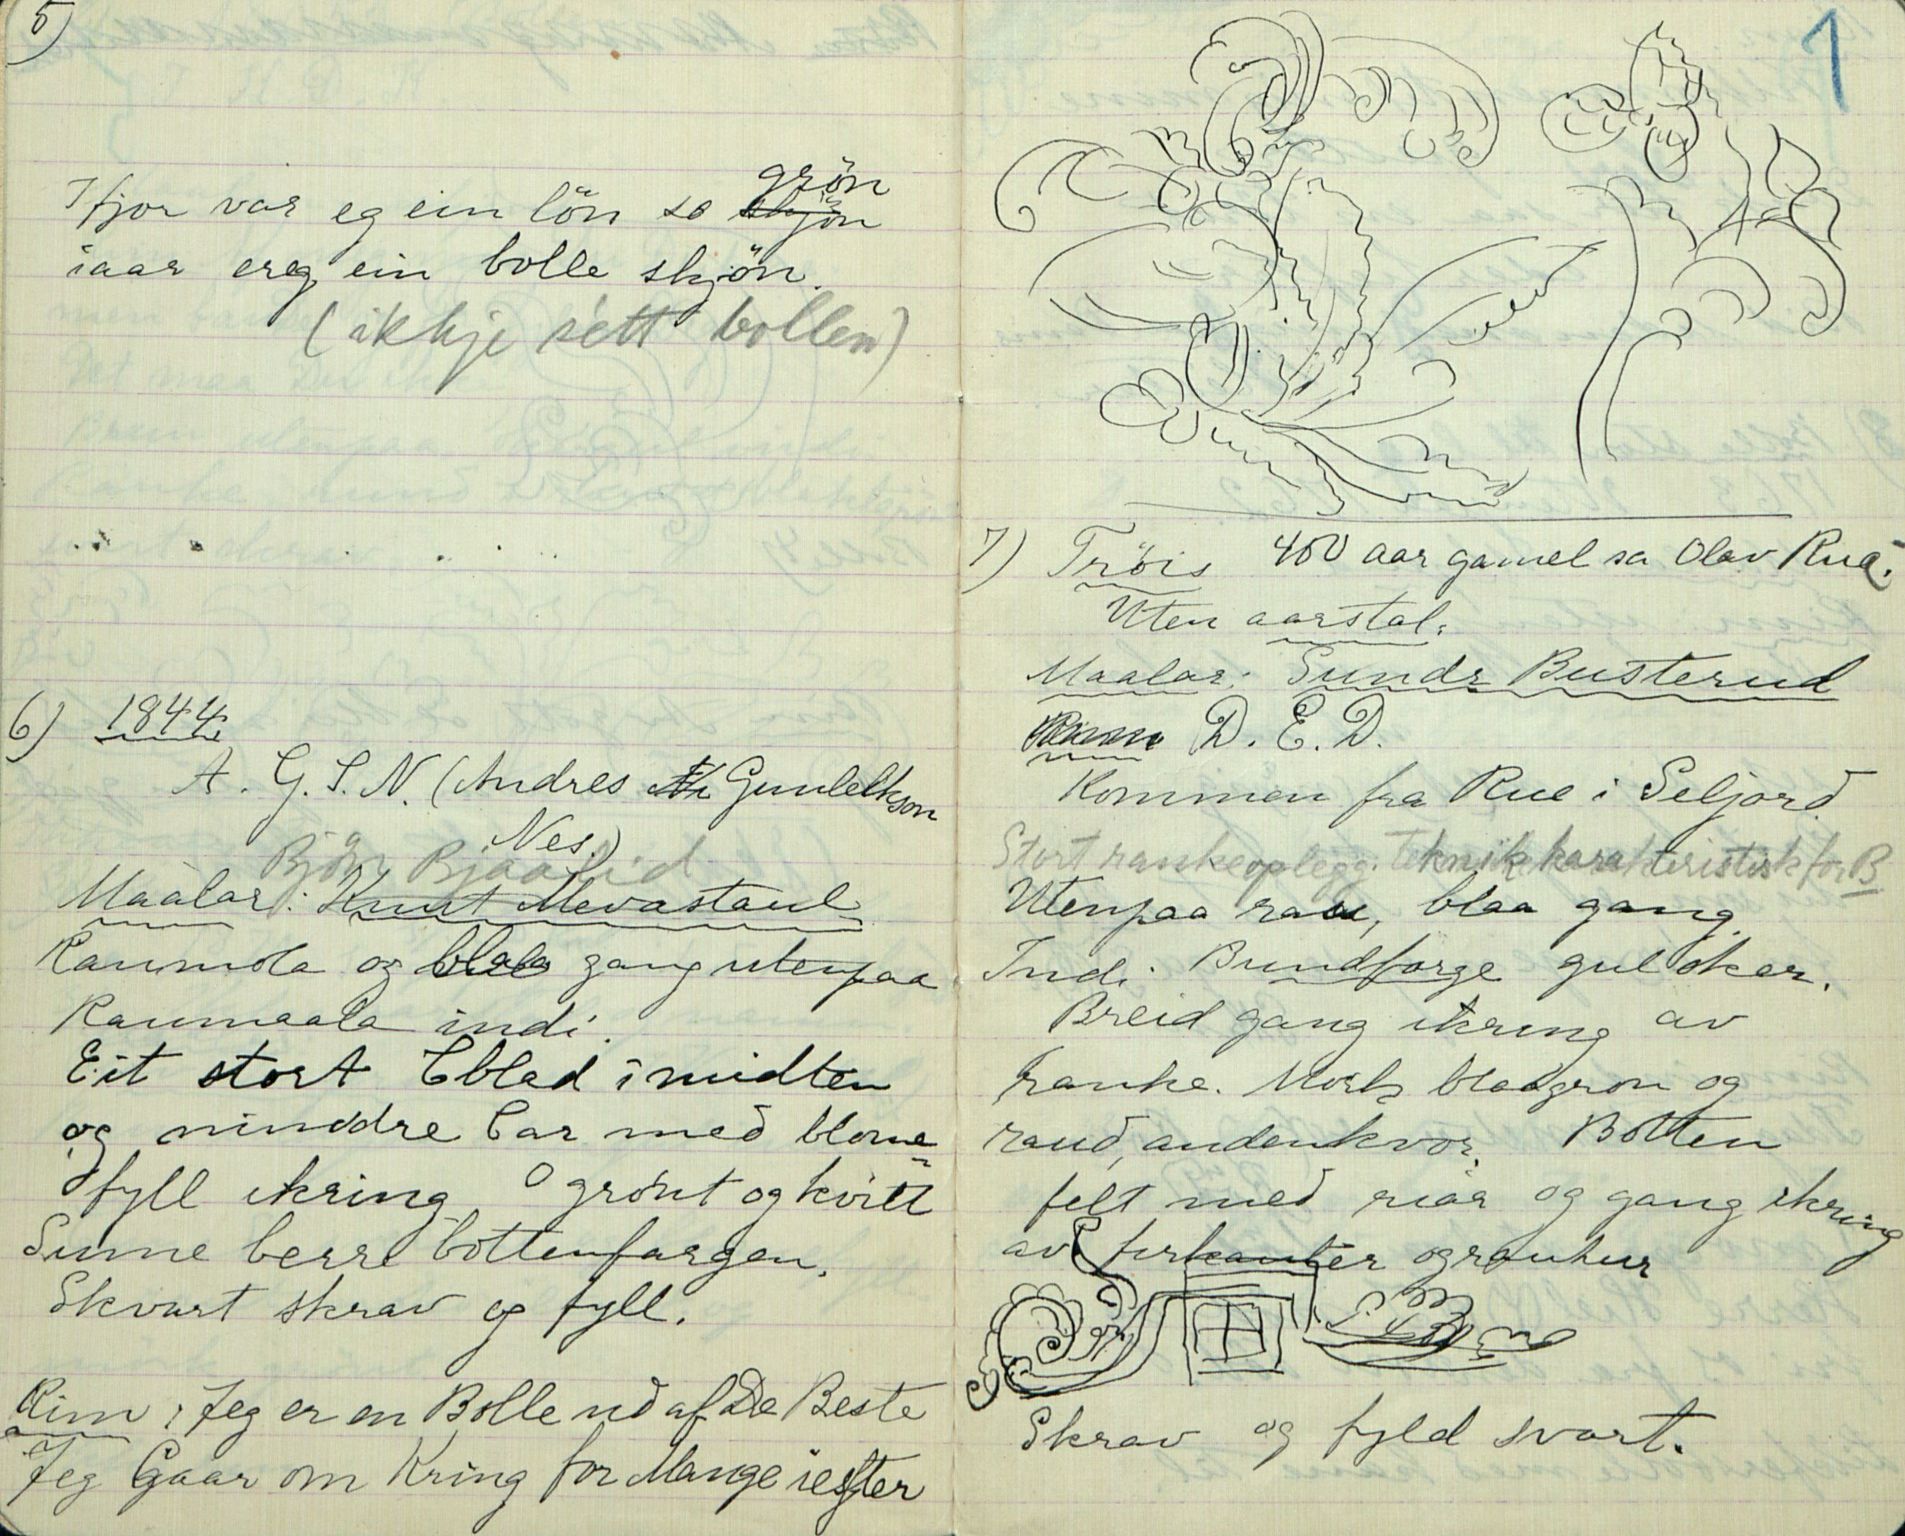 5)
grön
I fjor var eg ein lön so skjön
iaar er eg ein bolle skjön.
(ikkje sett bollen)
6) 1844
A. G. S. N. (Andres Gunleikson
Nes.)
Björn Bjaalid
Maalar: Knut Mevastaul
Raumola og blaa gang utenpaa
Raumaala indi.
Eit stort Cblad i midten
og mindre Car med blome
fyll ikring. Grönt og kvitt
Sume berre bottenfargen.
Skvart skrav og fyll.
Rim: Jeg er en Bolle ud af De Beste
Jeg Gaar om Kring for Mange iester
1
7) Tröis 400 aar gamel sa Olav Rue.
Uten aarstal.
Maalar: Sundr Busterud
D. E. D.
Kommen fra Rue i Seljord
Stort rankeoplegg. Teknikk karakteristisk for B
Utenpaa rau, blaa gang.
Indi. Bundfarge gul oker.
Breid gang ikring av
ranke. Mork blaagrøn og
raud, andenkvor. Botten
felt med riar og gang ikring
av firkanter og rankur
Skrav og fyld svart.